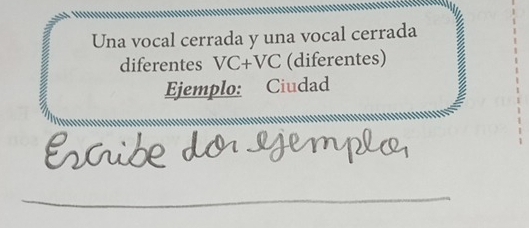 Una vocal cerrada y una vocal cerrada
diferentes VC+VC (diferentes)
Ejemplo: Ciudad
Escribe dos ejemplos